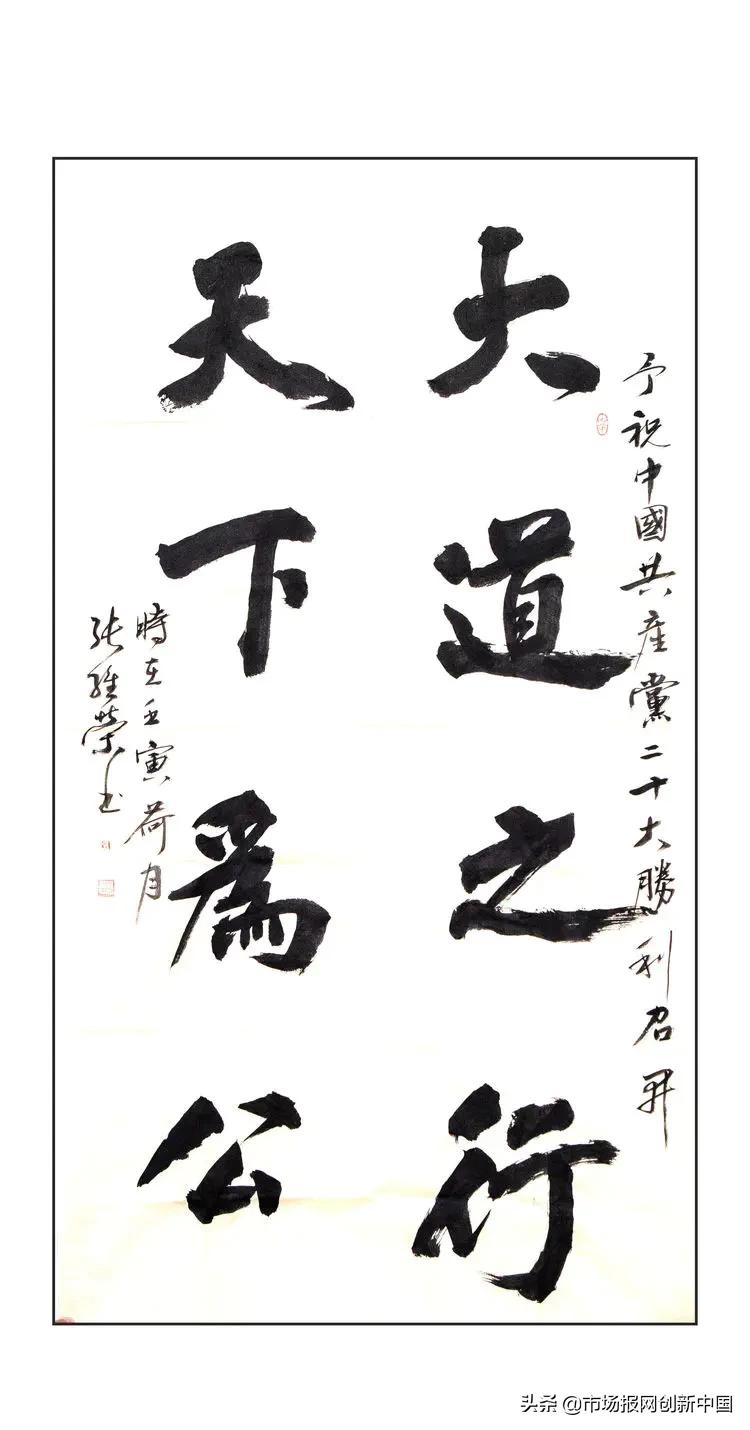 予祝中國共産黨二十大勝利召开
大道之行
天下爲公
時在壬寅荷月
张維荣书
头条 @市场报网创新中国